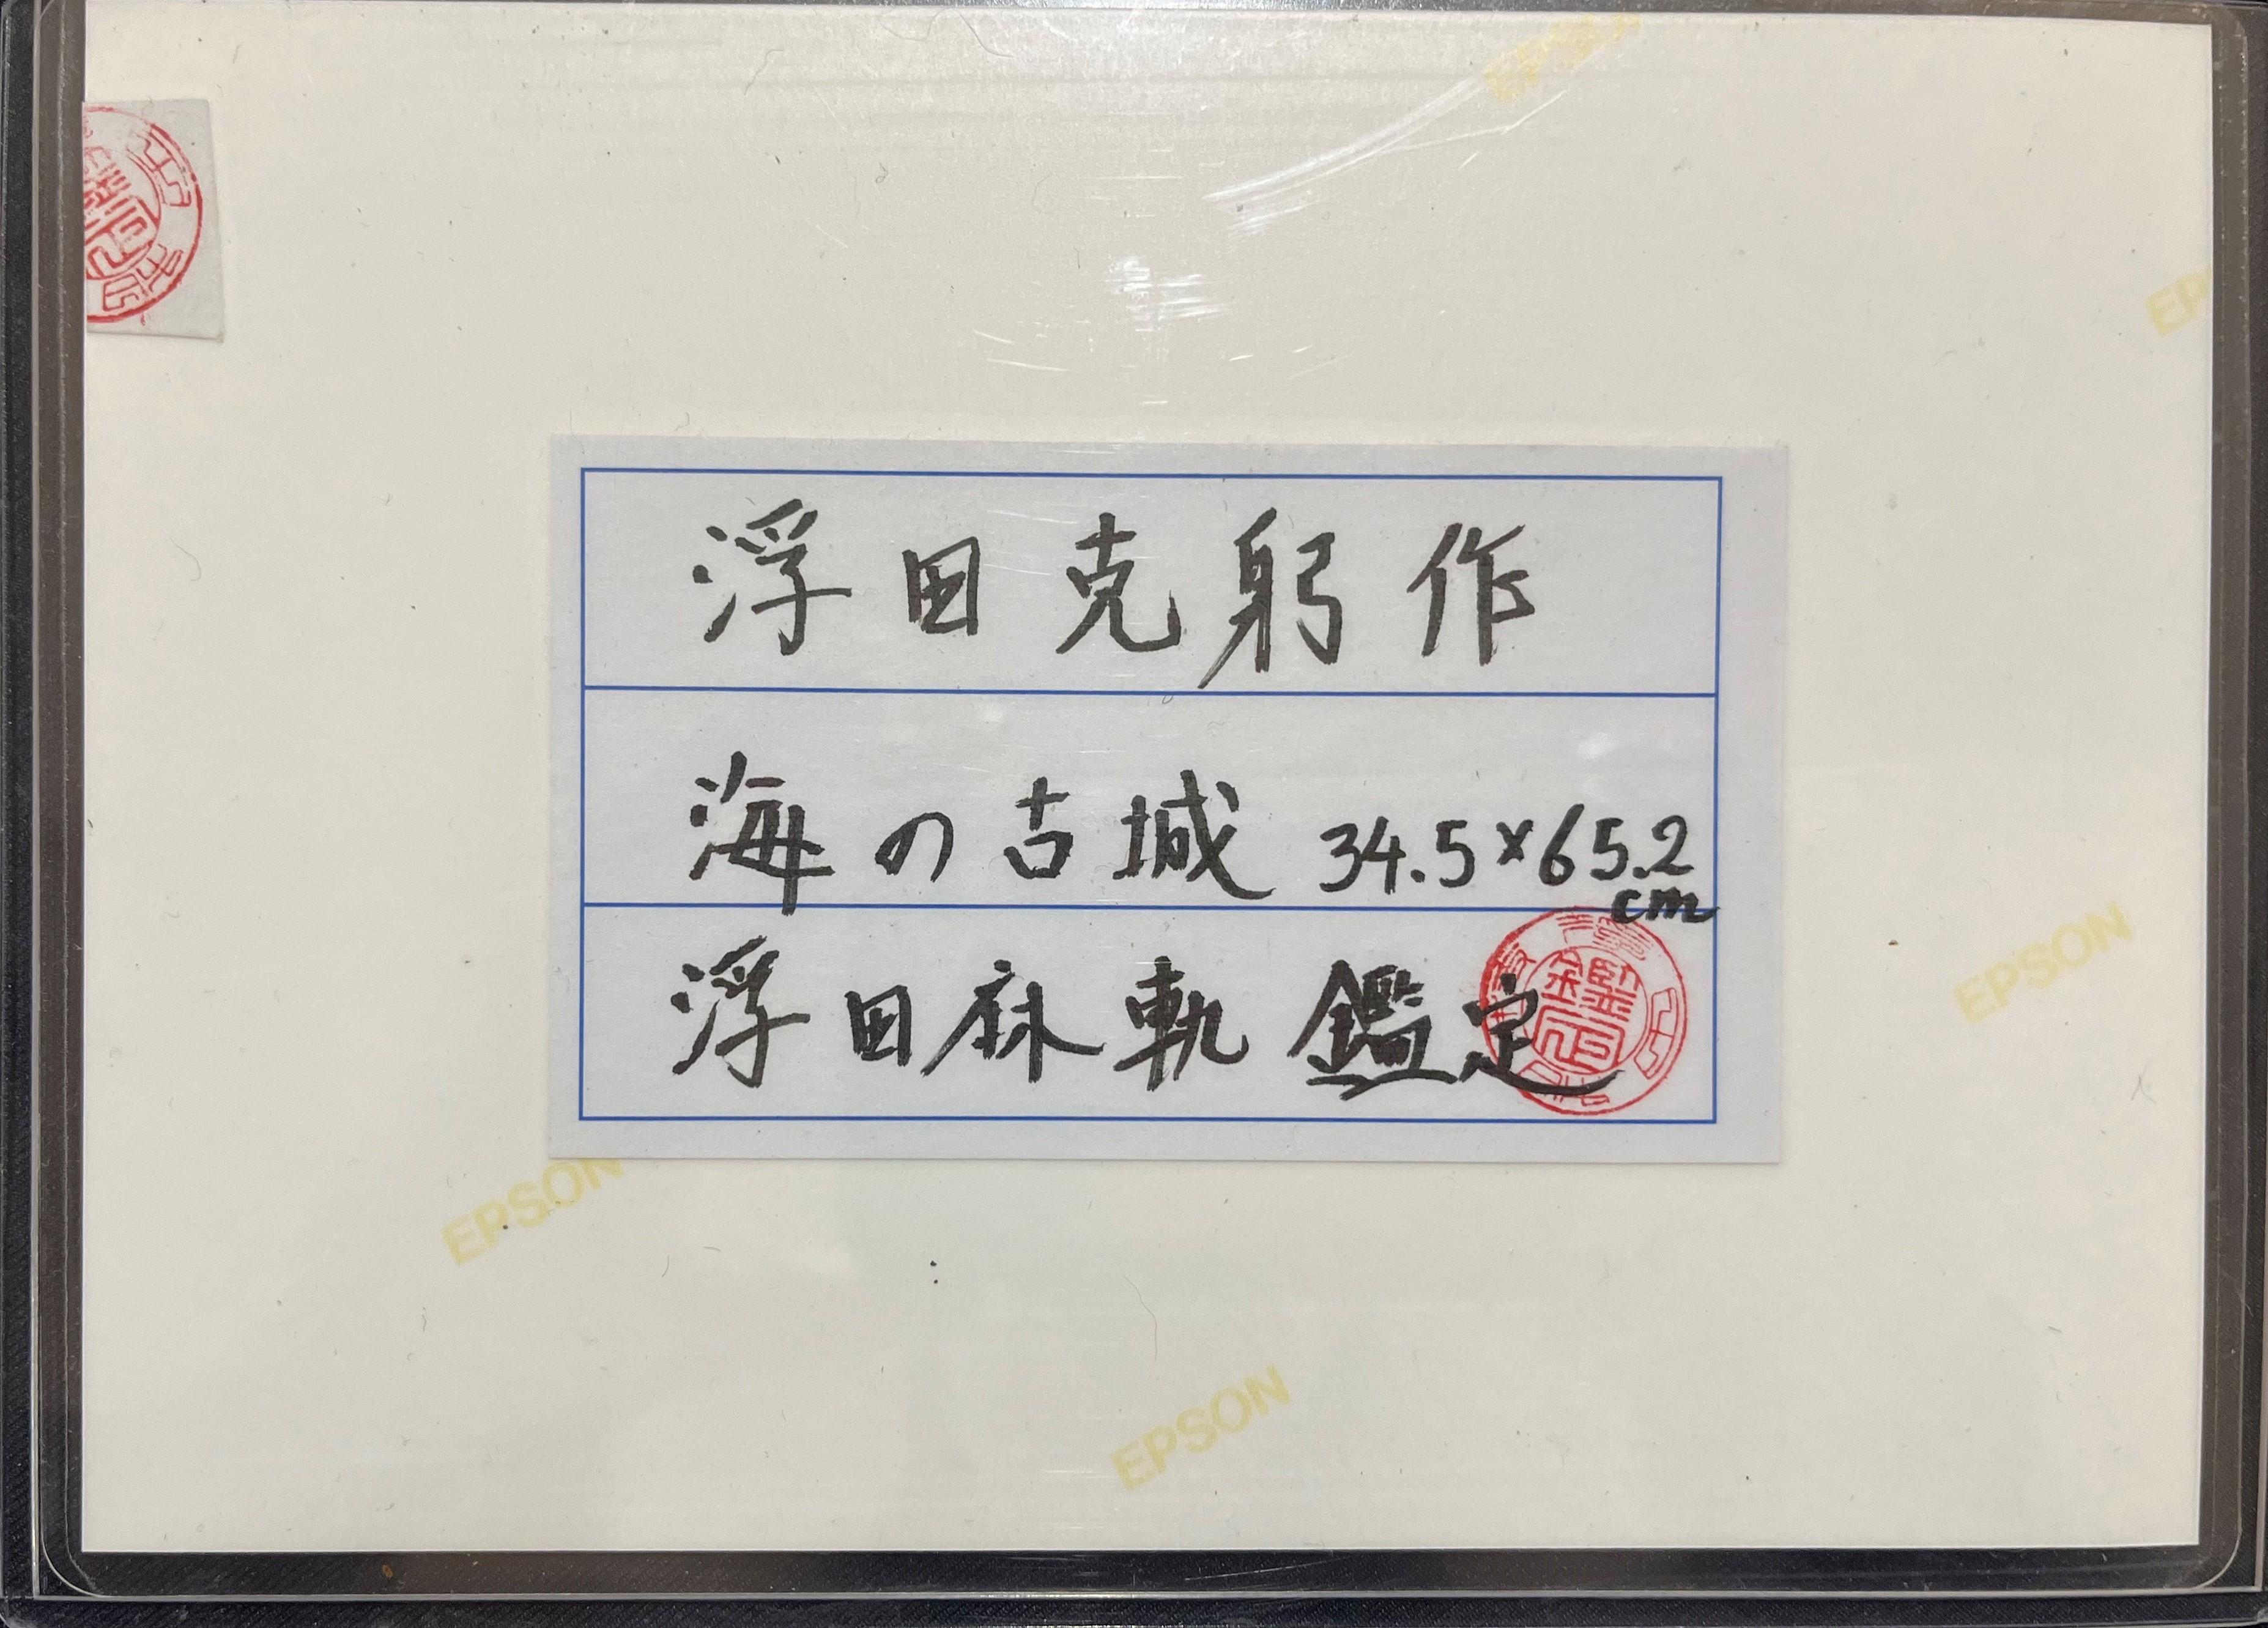 浮田克躬作
海の古城 34.5×65.2
cm
浮田麻軌 鑑定
EPSON
EPSON
EPSON